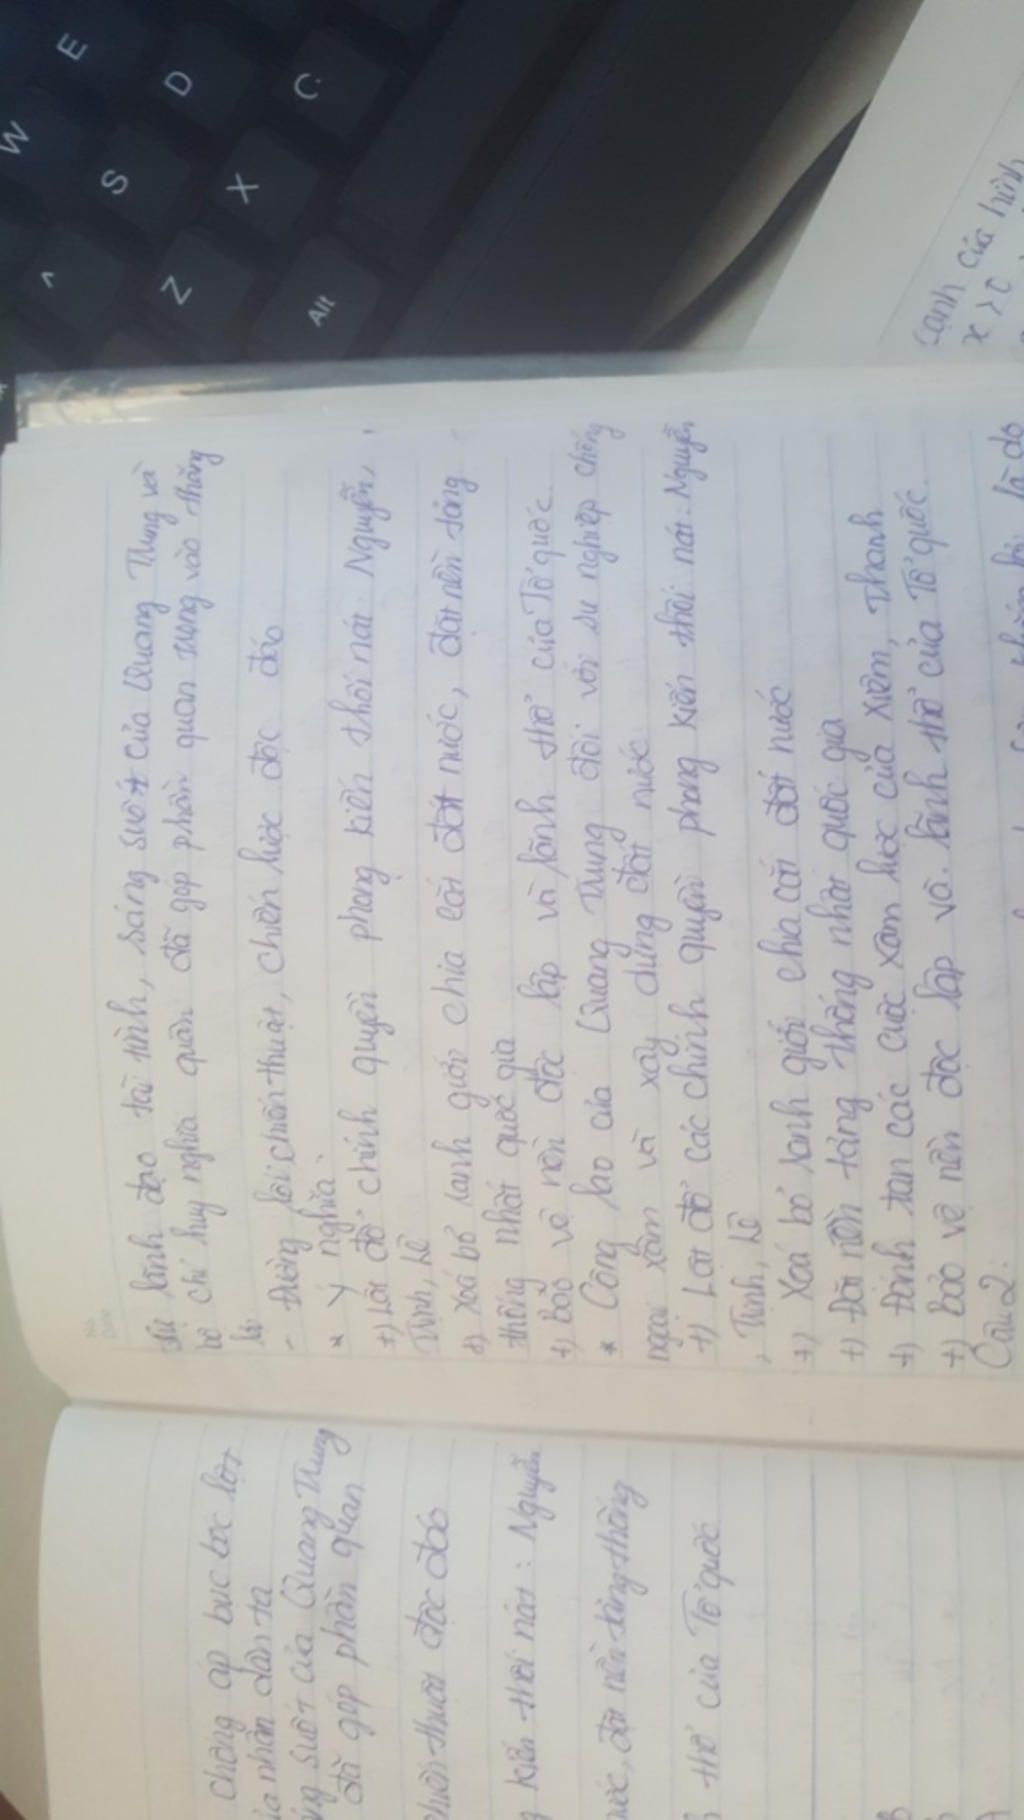 Sự lãnh đạo tài tình, sáng suốt của Quang Trung và
bộ chỉ huy nghĩa quân đã góp phần quan trọng vào thắng
lợi
- Đường lối chiến thuật, chiến lược độc đáo
* Ý nghĩa:
+) Lật đổ chính quyền phong kiến thối nát: Nguyễn,
Trịnh, Lê
+) Xoá bỏ ranh giới chia cắt đất nước, đặt nền tảng
thống nhất quốc gia
+) Bảo vệ nền độc lập và lãnh thổ của Tổ quốc.
* Công lao của Quang Trung đối với sự nghiệp chống
ngoại xâm và xây dựng đất nước
+) Lật đổ các chính quyền phong kiến thối nát: Nguyễn
, Trịnh, Lê
+) Xoá bỏ ranh giới chia cắt đất nước
+) Đặt nền tảng thống nhất quốc gia
+) Đánh tan các cuộc xâm lược của Xiêm, Thanh
+) Bảo vệ nền độc lập và lãnh thổ của Tổ quốc.
Câu 2:
chống áp bức bóc lột
của nhân dân ta
suốt của Quang Trung
đã góp phần quan
thuật độc đáo
kiến thối nát: Nguyễn
nước, đặt nền tảng thống
thổ của Tổ quốc
cạnh của hình
x > 0
là do
W
E
S
D
^
Z
X
C
Alt